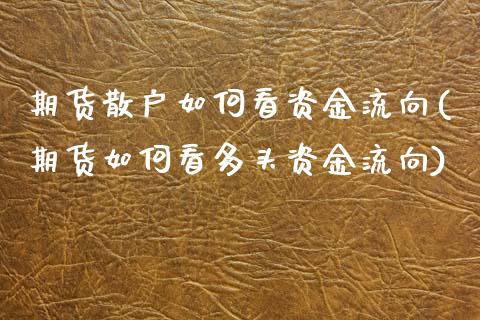 期货散户如何看资金流向(
期货如何看多头资金流向)